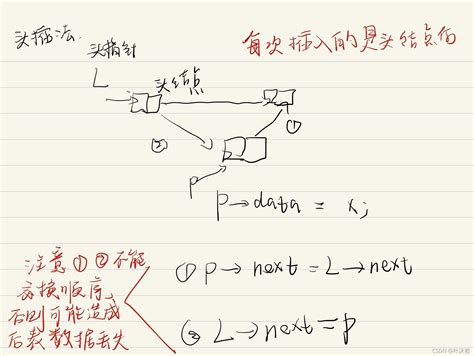 头插法.
每次插入的是头结点后
头指针
L
头结点
①
②
P
p→data = x;
注意①②不能
交换顺序,
否则可能造成
后表数据丢失
①p→next=L→next
②L→next=p